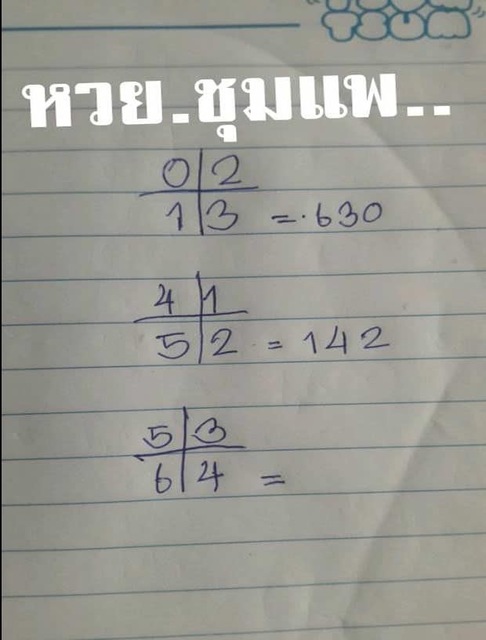 หวย.ชุมแพ..
0 2
1 3 = . 630
4 1
5 2 = 142
5 3
6 4 =